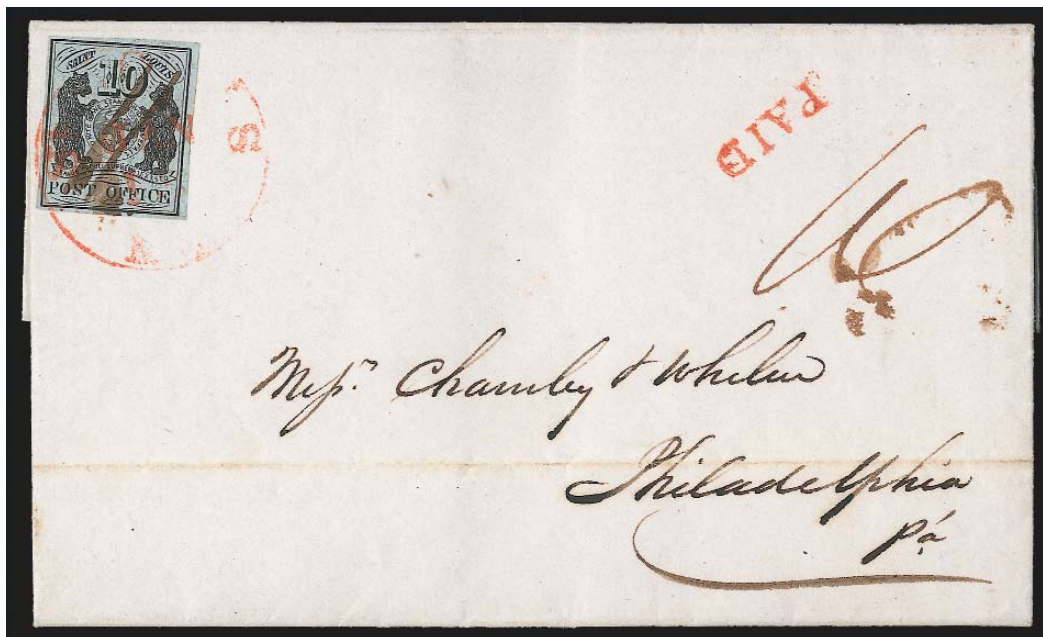 SAINT LOUIS
10
POST OFFICE
PAID
10
Mess.rs Charnley & Whelen
Philadelphia
Pa